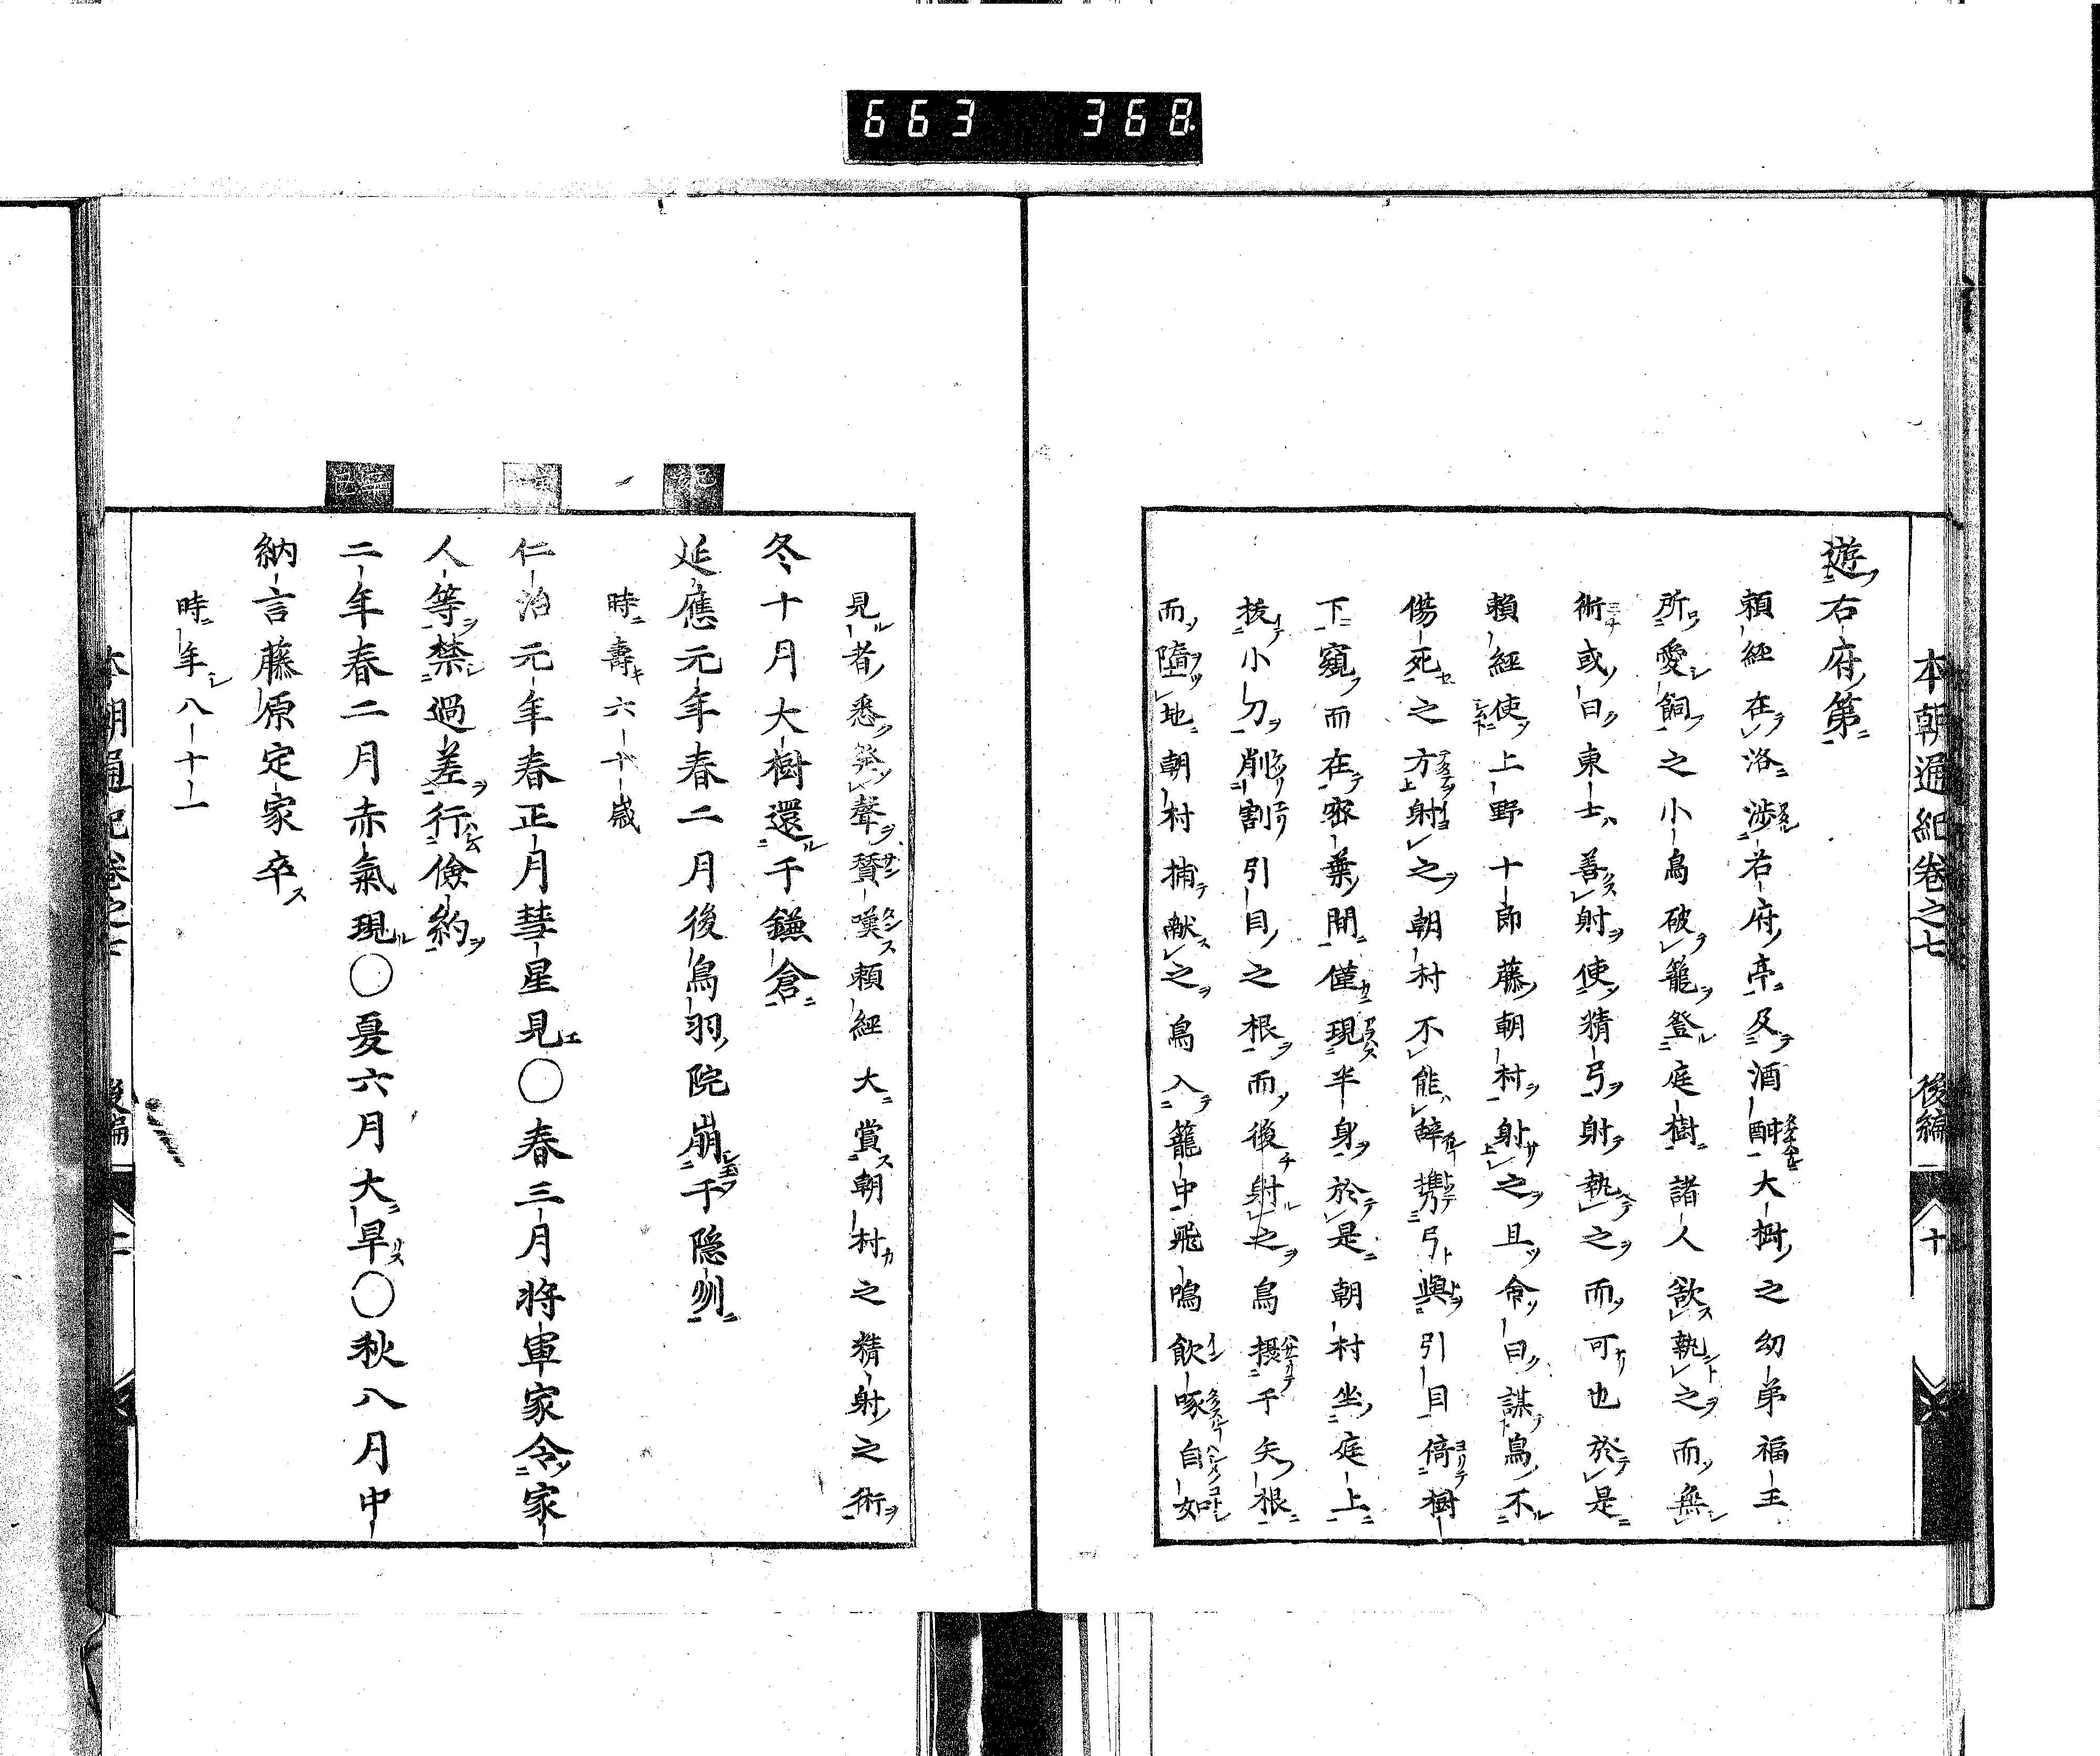 663 368
本朝通紀卷之七 後編 十
遊右府第
頼經在洛渉右府亭及酒酣大樹之幼弟福王
所愛飼之小鳥破籠登庭樹諸人欲執之而無
術或曰東士善射使精弓射執之而可也於是
頼經使上野十郎藤朝村射之且命曰謀鳥不
傷死之方射之朝村不能辭携弓與引目倚樹
下窺而在密葉間僅現半身於是朝村坐庭上
拔小刀削割引目之根而後射之鳥挾于矢根
而墮地朝村捕献之鳥入籠中飛鳴飲啄自如
見者悉發聲賛嘆頼經大賞朝村之精射之術
冬十月大樹還于鎌倉
延應元年春二月後鳥羽院崩于隠州
時壽六十歳
仁治元年春正月彗星見〇春三月將軍家令家
人等禁過差行儉約
二年春二月赤氣現〇夏六月大旱〇秋八月中
納言藤原定家卒
時年八十一
本朝通紀卷之七 後編